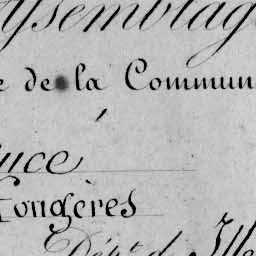 ssemblag
e de la Commun
nce
Fougères
Dépt. d Ille